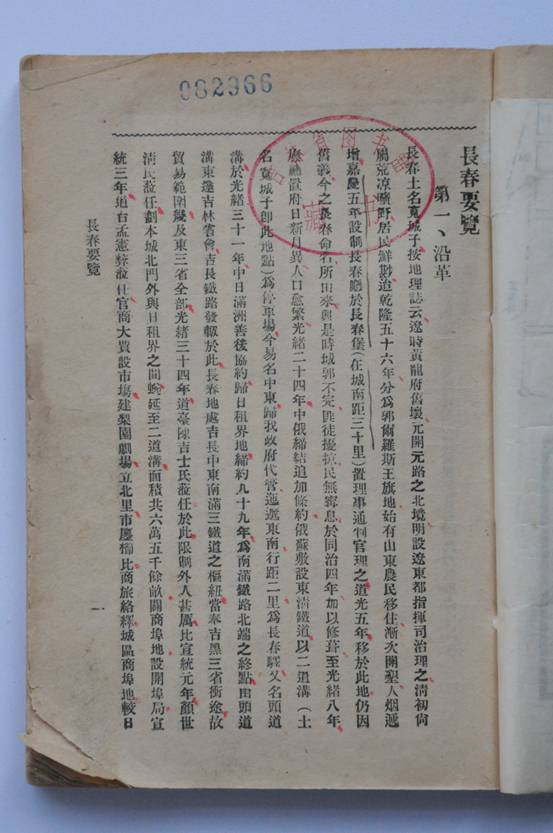 082966
長春要覽
第一、沿革
長春土名寬城子按地理誌云遼時黃龍府舊壤元開元路之北境明設遼東都指揮司治理之清初尙
屬荒凉曠野居民鮮尠迨乾隆五十六年分爲郭爾羅斯王旗地始有山東農民移住漸次開墾人烟遞
增嘉慶五年設制長春廳於長春堡(在城南距三十里)置理事通判官理之道光五年移於此地仍因
舊義今之長春命名所由來與是時城郭不完匪徒擾掠民無寗息於同治四年加以修葺至光緖八年
府日新月異人口愈繁光緖二十四年中俄締結追加條約俄羅敷設東淸鐵道以二道溝(土
名寬城子卽此地點)爲停車塲今易名中東歸我政府代管迤邐東南行距二里爲長春驛又名頭道
溝於光緖三十一年中日滿洲善後協約歸日租界地締約九十九年爲南滿鐵路北端之終點由頭道
溝東達吉林省會吉長鐵路發軔於此長春地處吉長中東南滿三鐵道之樞紐當奉吉黑三省衝途故
貿易範圍幾及東三省全部光緖三十四年道臺陳吉士氏蒞任於此限制外人甚厲比宣統元年顏世
淸氏蒞任劃本城北門外與日租界之間蜿延至二道溝面積共六萬五千餘畝闢商埠地設開埠局宣
統三年道台孟憲彝蒞任官商大賈設市塲建梨園劇塲立北里市廛櫛比商旅絡繹城區商埠地較日
長春要覽
一